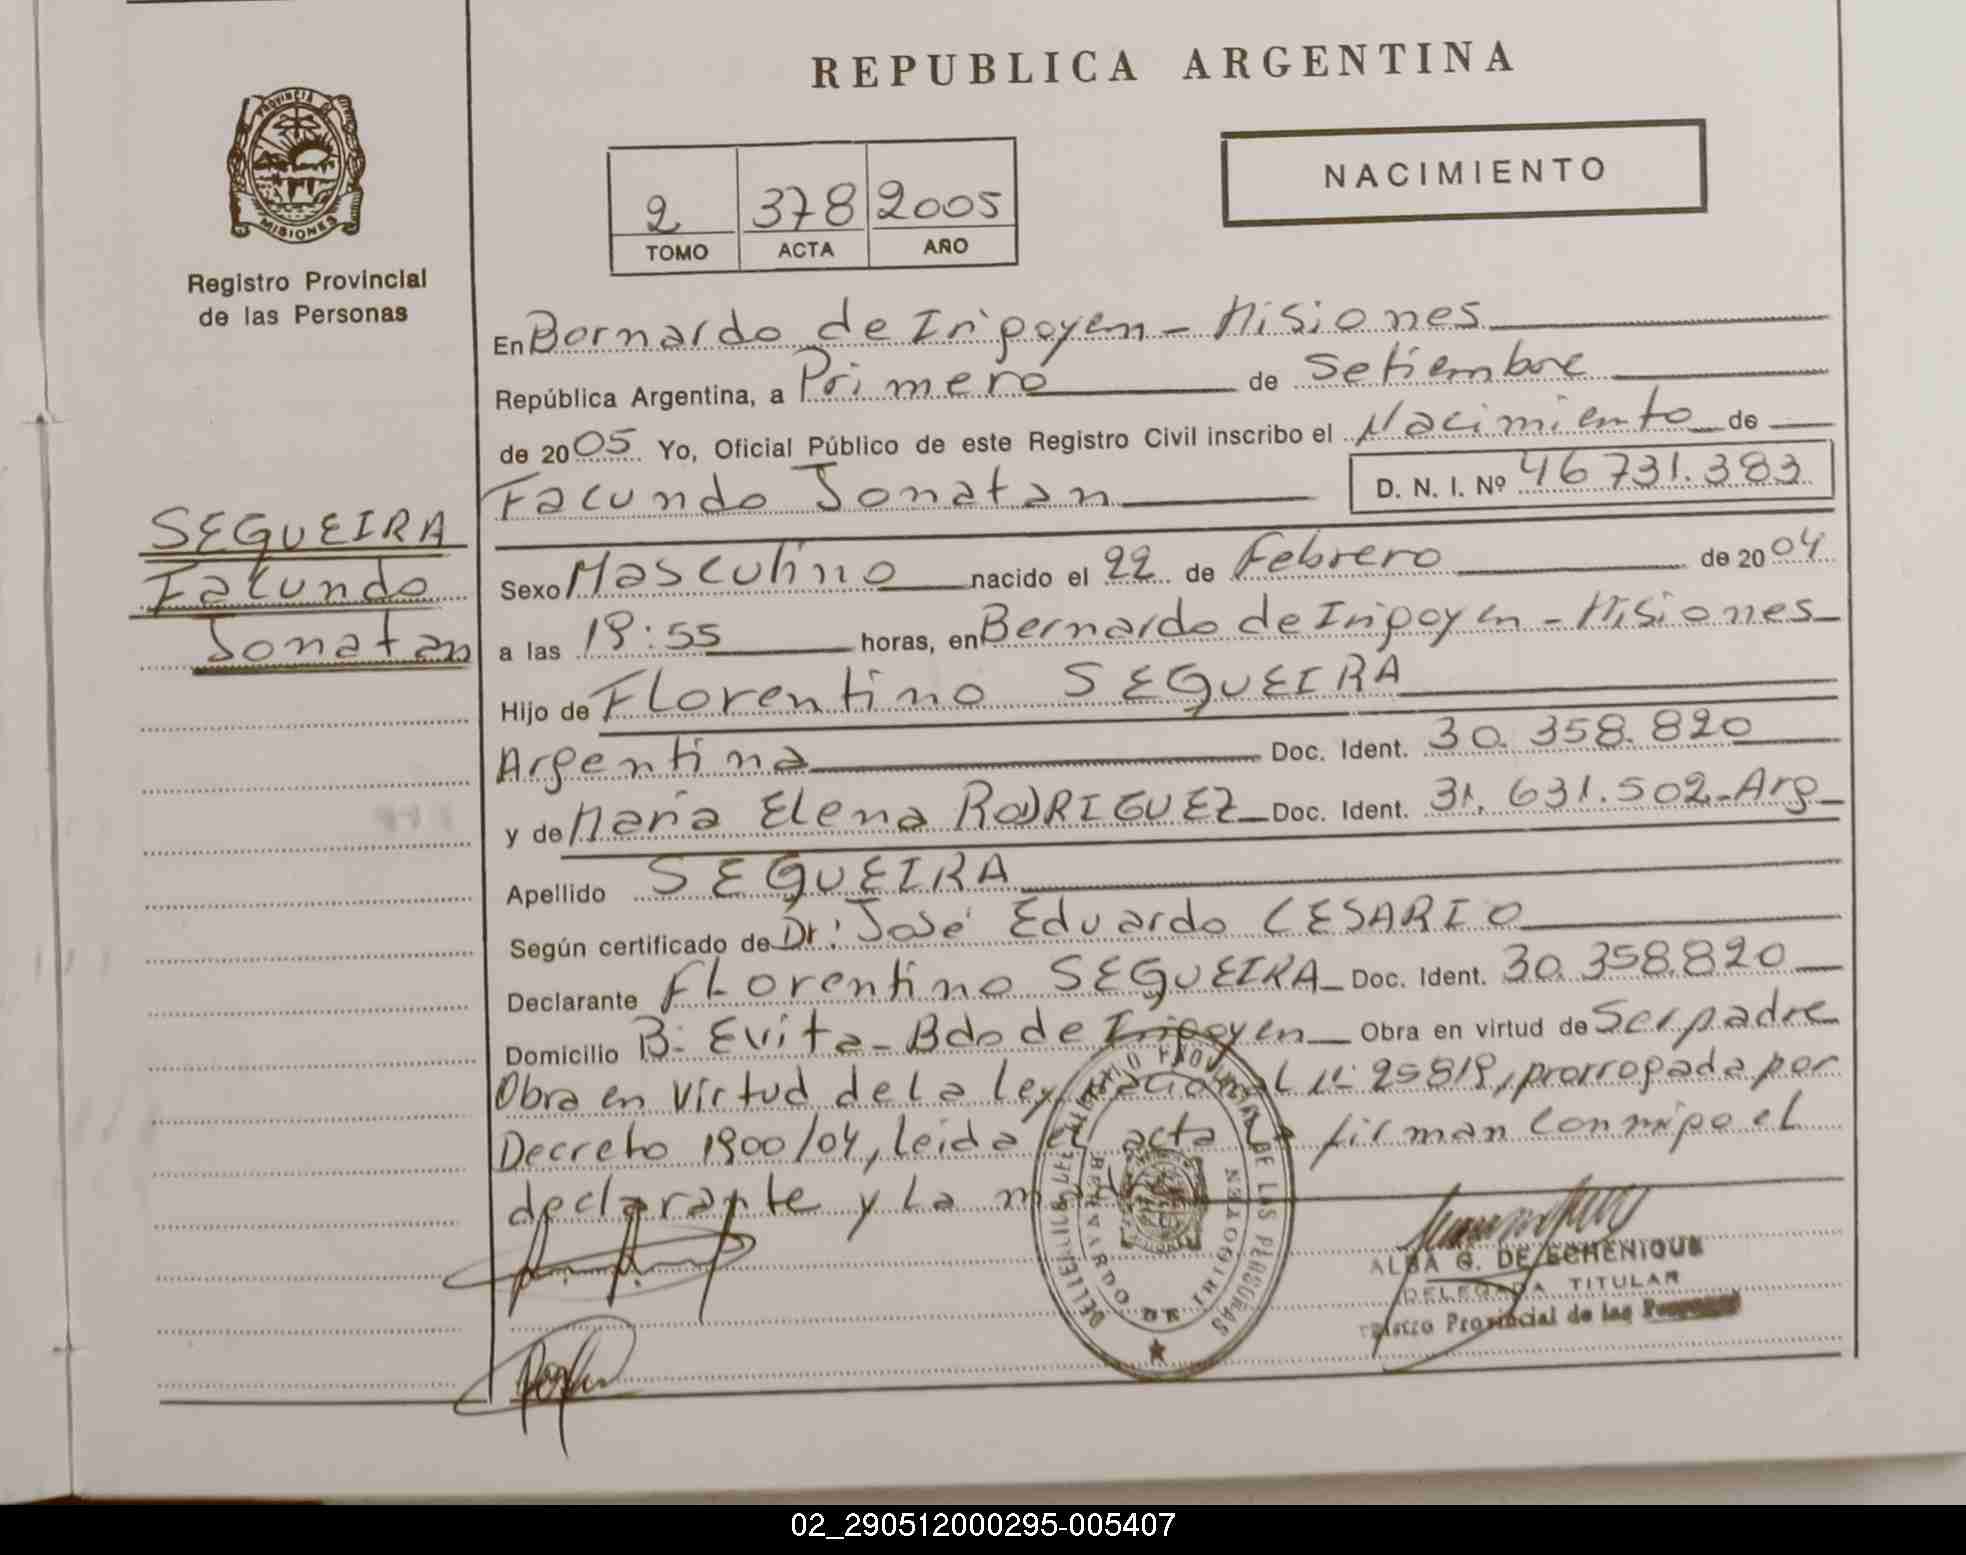 REPUBLICA ARGENTINA
PROVINCIA DE
MISIONES
Registro Provincial
de las Personas
2 378 2005
TOMO ACTA AÑO
NACIMIENTO
En Bernardo de Irigoyen - Misiones
República Argentina, a Primero de Setiembre
de 2005 Yo, Oficial Público de este Registro Civil inscribo el Nacimiento de
Facundo Jonatan D. N. I. Nº 46 731.383
SEGUEIRA
Facundo
Jonatan
Sexo Masculino nacido el 22 de Febrero de 2004
a las 19:55 horas, en Bernardo de Irigoyen - Misiones
Hijo de Florentino SEGUEIRA
Argentina Doc. Ident. 30.358.820
y de Maria Elena RODRIGUEZ Doc. Ident. 31.631.502-Arg
Apellido SEGUEIRA
Según certificado de Dr: José Eduardo CESARIO
Declarante Florentino SEGUEIRA Doc. Ident. 30.358.820
Domicilio B: Evita - Bdo de Irigoyen Obra en virtud de Ser padre
Obra en virtud de la ley nacional n: 25819, prorrogada por
Decreto 1900/04, leida el acta la firman conmigo el
declarante y la
DE LAS PERSONAS
BERNARDO DE IRIGOYEN
ALBA G. DE ECHENIQUE
DELEGADA TITULAR
Provincial de las
02_290512000295-005407